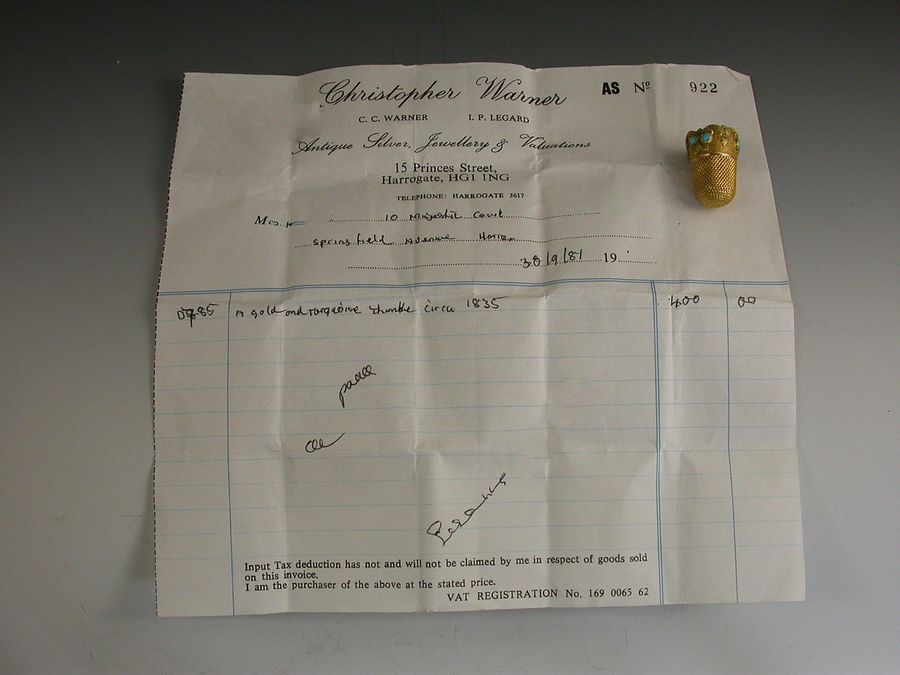 Christopher Warner AS Nº 922
C. C. WARNER I. P. LEGARD
Antique Silver, Jewellery & Valuations
15 Princes Street,
Harrogate, HG1 1NG
TELEPHONE: HARROGATE 3617
10 Majestic Court
Springfield Avenue
30/9/81 19
A gold and turquoise thimble circa 1835 400 00
Input Tax deduction has not and will not be claimed by me in respect of goods sold
on this invoice.
I am the purchaser of the above at the stated price.
VAT REGISTRATION No. 169 0065 62